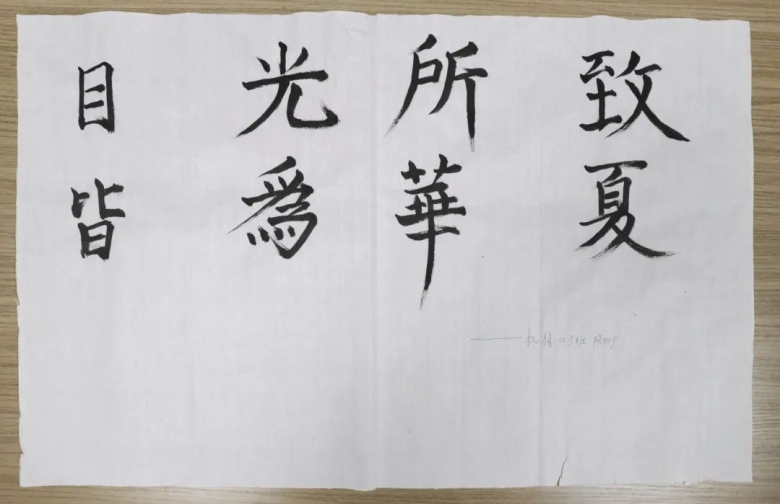 目光所致
皆爲華夏